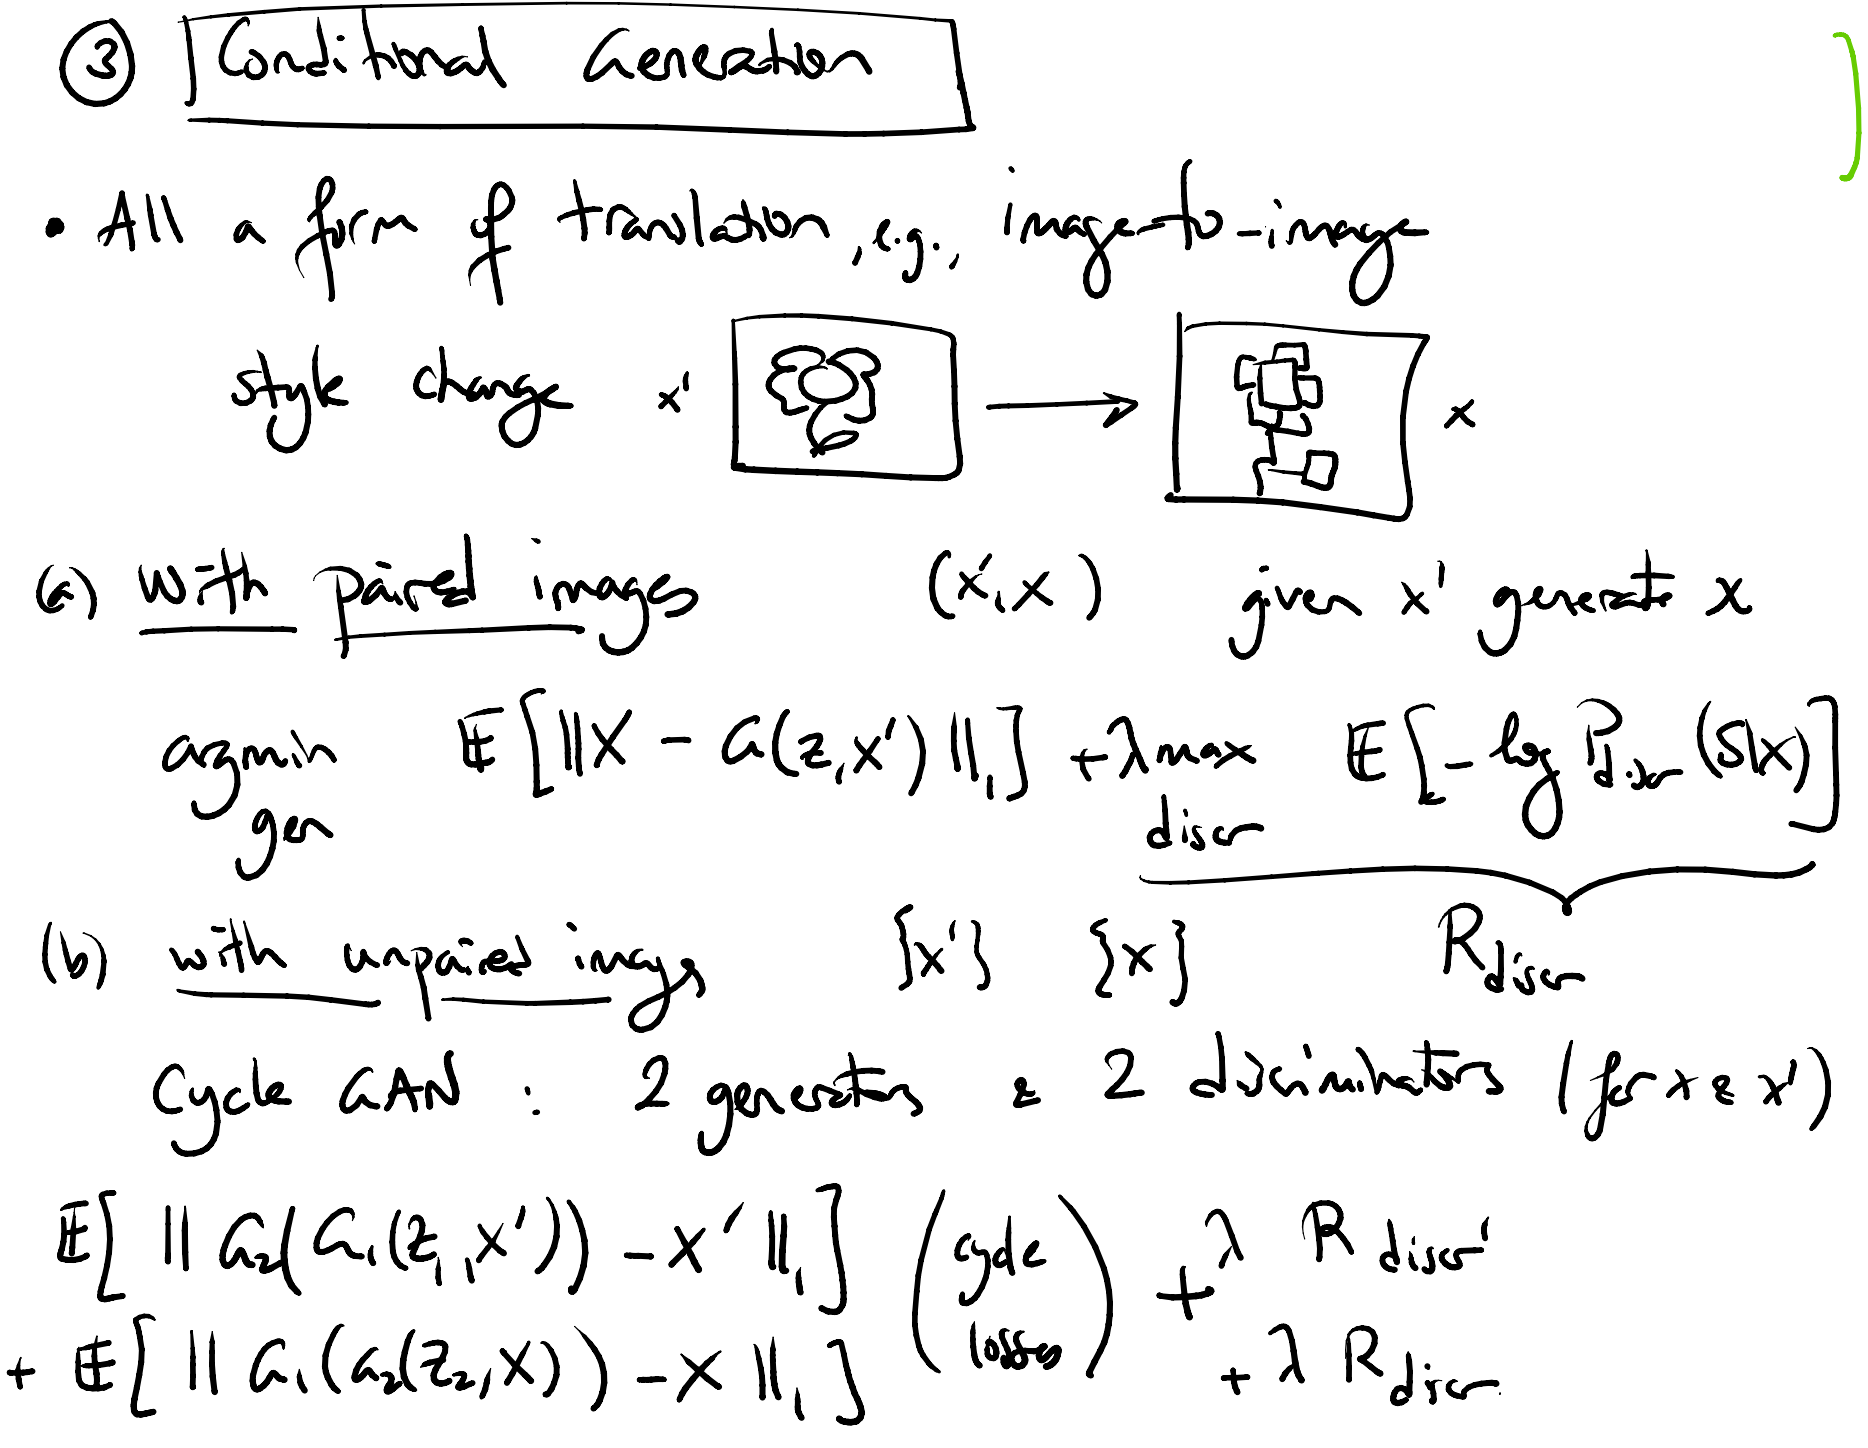 ③ Conditional Generation
• All a form of translation, e.g., image-to-image
style change x' → x
(a) with paired images (x', x) given x' generate x
argmin gen 𝔼[||X - G(z, x')||₁] + λ max discr 𝔼[- log P_discr (S|X)]
R_discr
(b) with unpaired images {x'} {x}
Cycle GAN : 2 generators & 2 discriminators (for x & x')
𝔼[ || G₂(G₁(z₁, X')) - X' ||₁] (cycle losses) + λ R_discr'
+ 𝔼[ || G₁(G₂(z₂, X)) - X ||₁] + λ R_discr